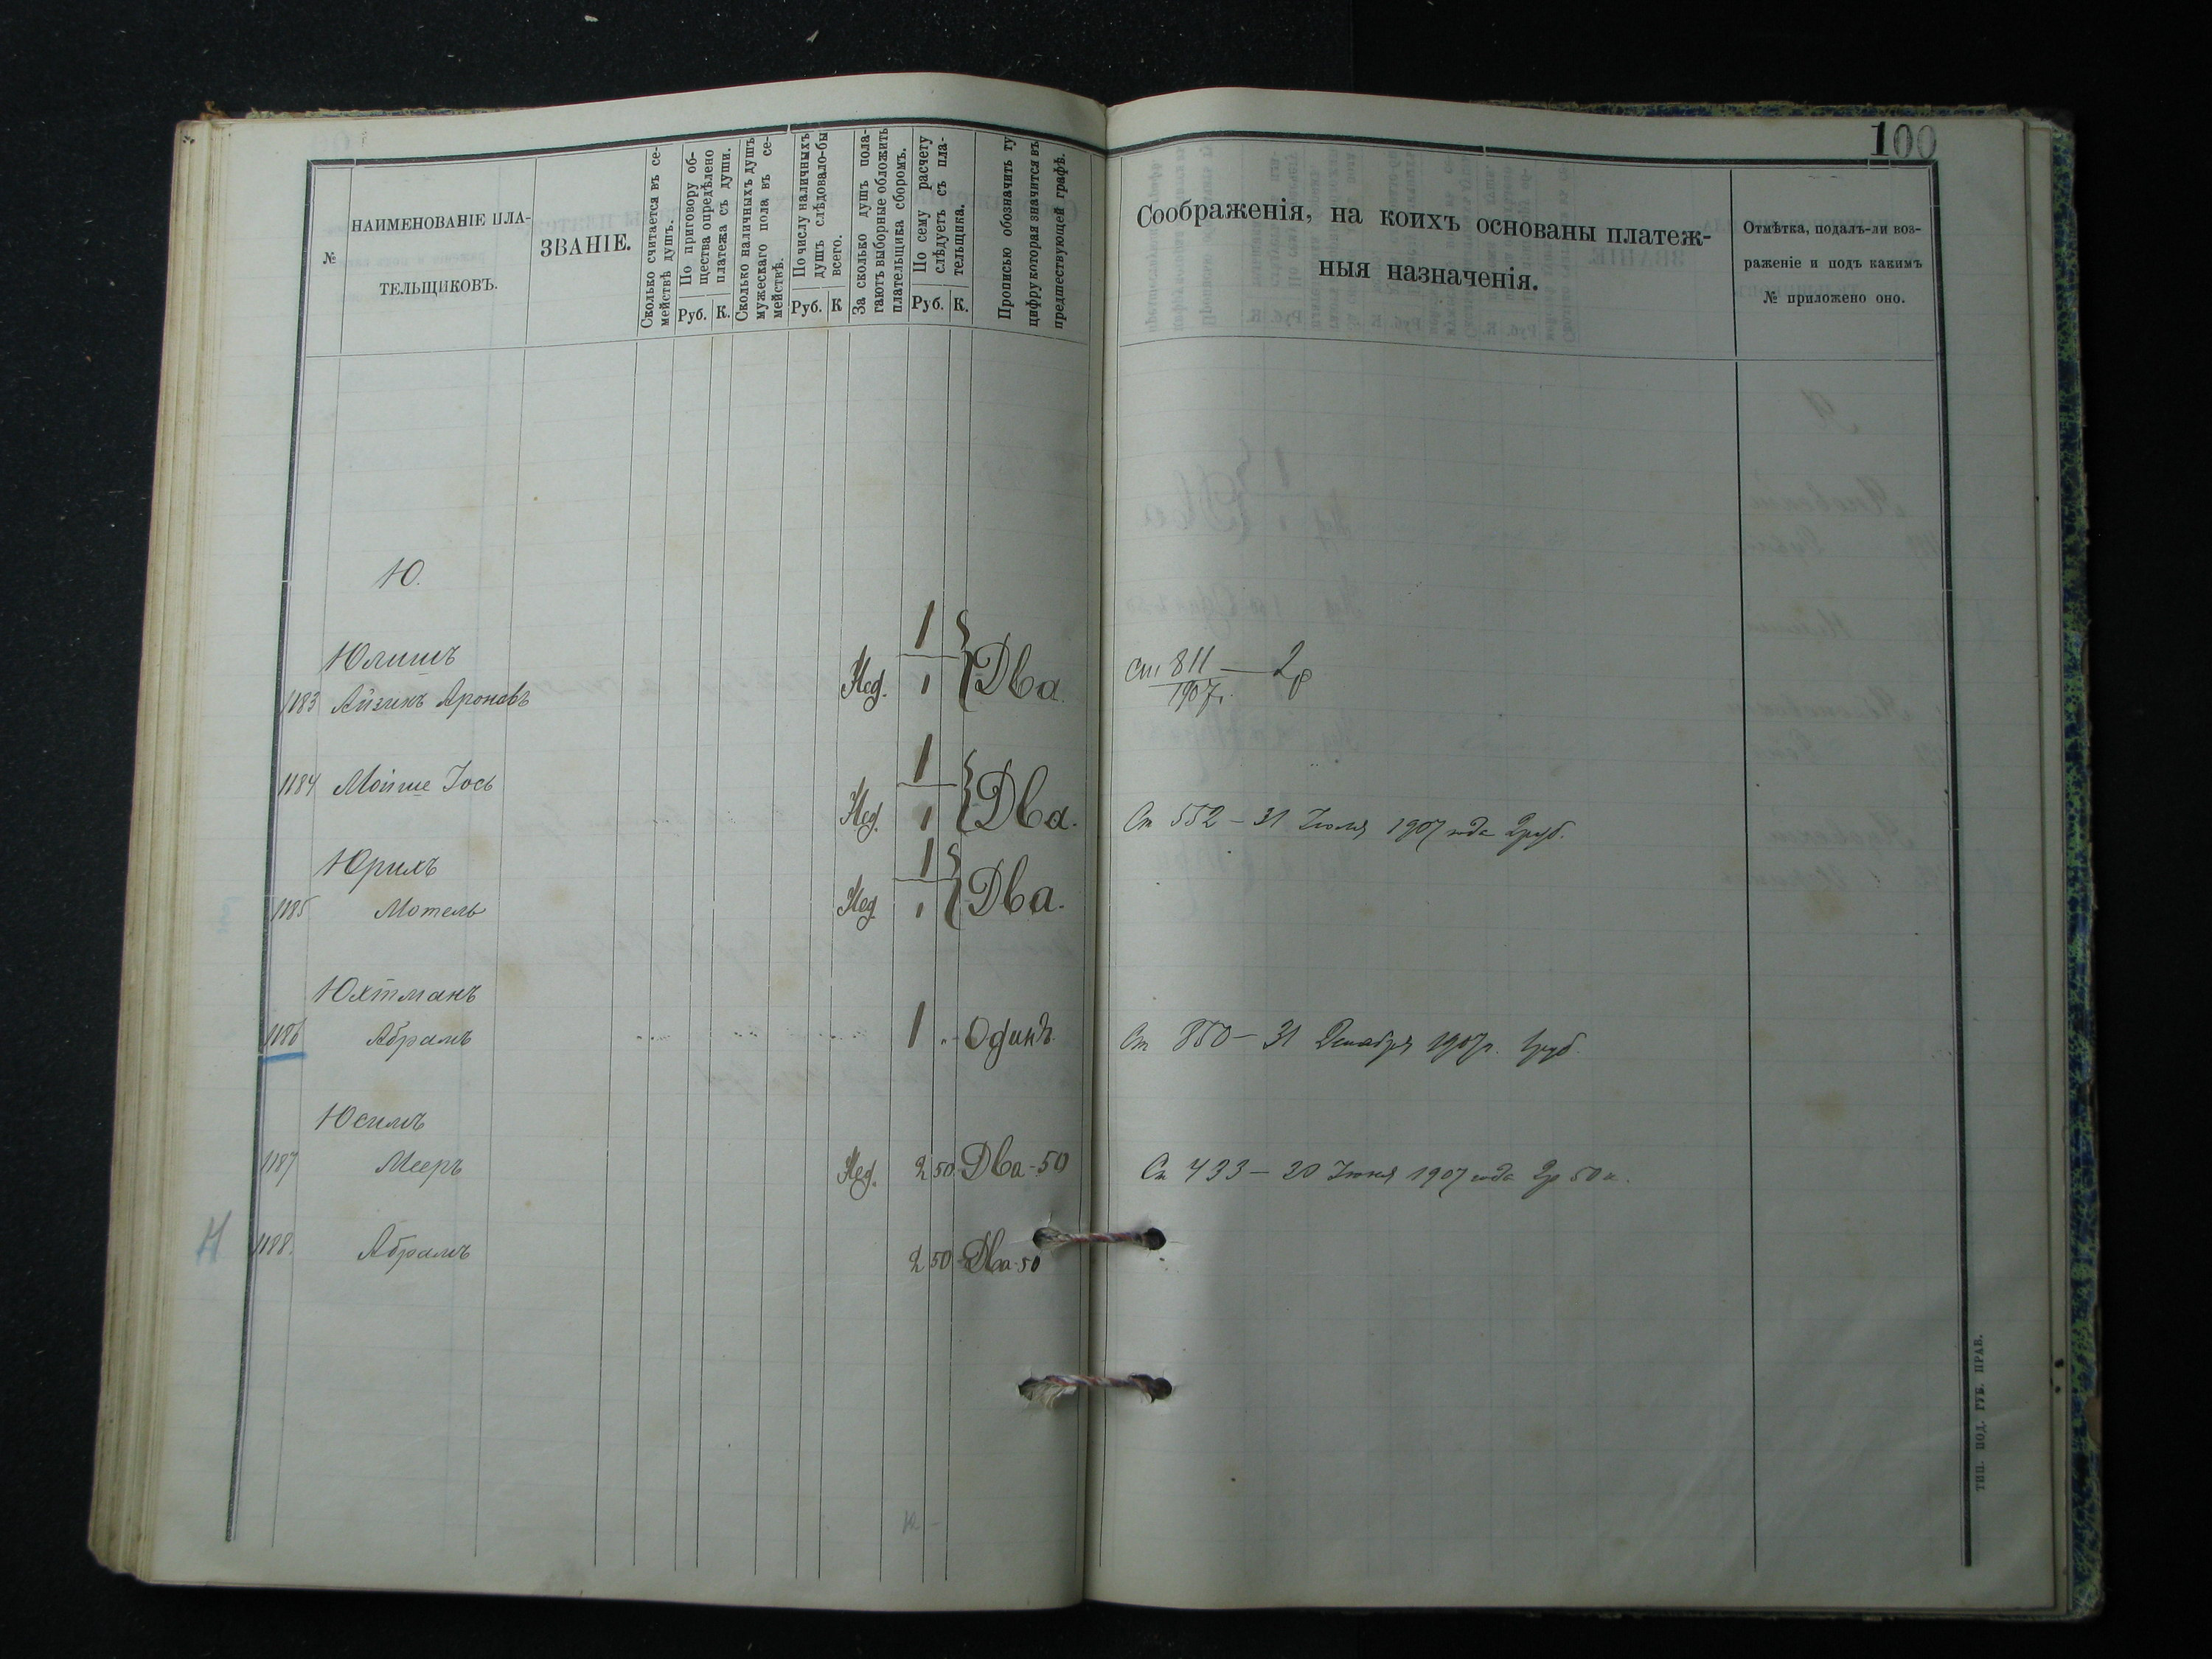 100
№
НАИМЕНОВАНІЕ ПЛА-
ТЕЛЬЩИКОВЪ.
ЗВАНІЕ.
Сколько считается въ се-
мействѣ душъ.
По приговору об-
щества опредѣлено
платежа съ души.
Руб. К.
Сколько наличныхъ душъ
мужескаго пола въ се-
мействѣ.
По числу наличныхъ
душъ слѣдовало-бы
всего.
Руб. К
За сколько душъ пола-
гаютъ выборные обложить
плательщика сборомъ.
По сему расчету
слѣдуетъ съ пла-
тельщика.
Руб. К.
Прописью обозначить ту
цифру которая значится въ
предшествующей графѣ.
Соображенія, на коихъ основаны платеж-
ныя назначенія.
Отмѣтка, подалъ-ли воз-
раженіе и подъ какимъ
№ приложено оно.
Ю.
Юлишъ 1
1183 Айзикъ Ароновъ Нед. 1 Два. Ст 811 — 2р
1907г.
1
1184 Мойше Іось Нед. 1 Два. Ст 552 — 31 Іюля 1907 года 2руб.
Юрихъ 1
1185 Мотель Нед. 1 Два.
Юхтманъ
1186 Абрамъ 1 " Одинъ. Ст 850 — 31 Декабря 1907г. 1руб.
Юсимъ
1187 Мееръ Нед. 2 50 Два-50 Ст 433 — 20 Іюня 1907 года 2р 50к.
Н 1188. Абрамъ 2 50 Два-50
ТИП. ПОД. ГУБ. ПРАВ.